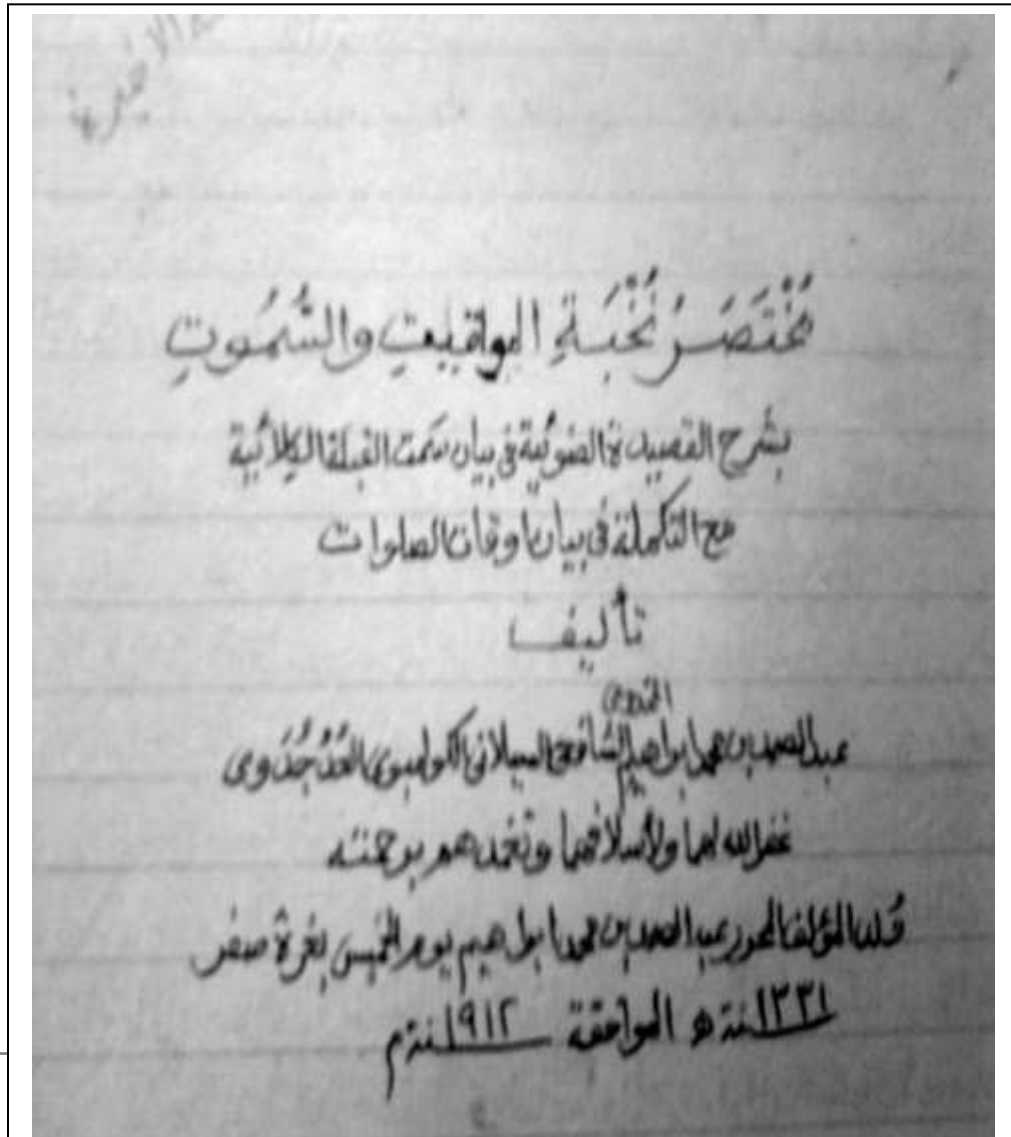 مُخْتَصَرُ نُخْبَةِ اليواقيتِ والسُّمُوتِ
بشرح القصيدة الضوئية في بيان سمت القبلة
مع التكملة في بيان اوقات الصلوات
تأليف
عبد الصمد بن محمد ابراهيم الشافعي السيلاني الكولمبوي
غفر الله لهما ولأسلافهما وتغمدهم برحمته
المؤلف المحرر عبد الصمد بن محمد ابراهيم يوم الخميس بغرة صفر
١٣٣١سنة ه الموافقة ١٩١٢سنة م